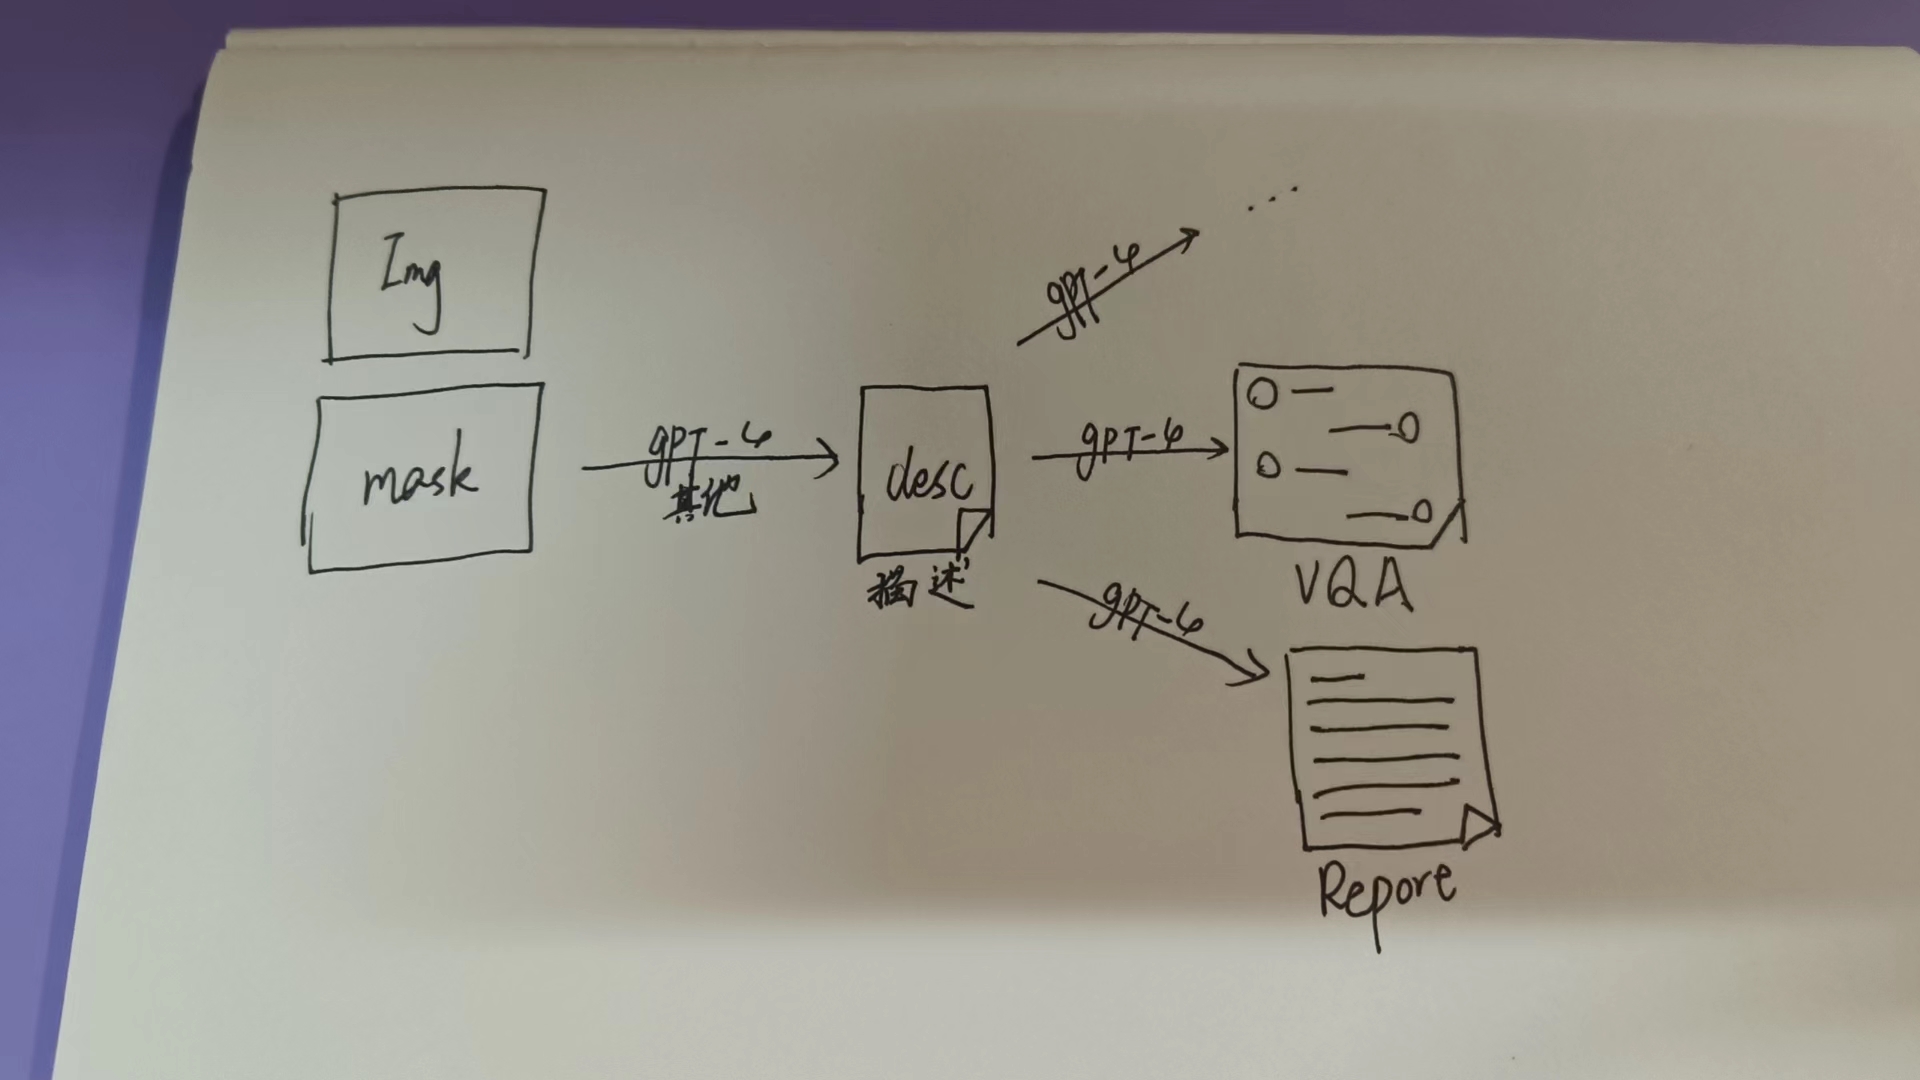 Img
mask
gpt-4
其他
desc
描述
gpt-4
...
gpt-4
VQA
gpt-4
Repore